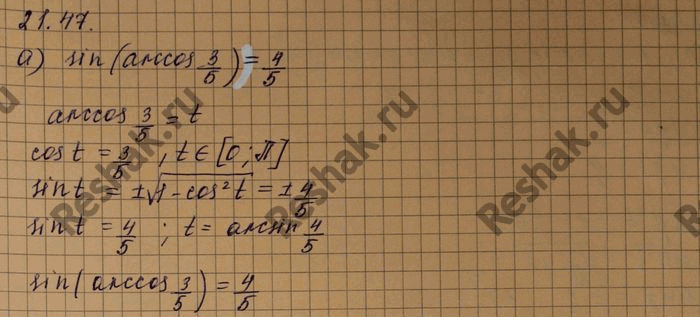 21.47.
а) sin(arccos 3/5) = 4/5
arccos 3/5 = t
cos t = 3/5, t ∈ [0; π]
sin t = ±√1-cos²t = ± 4/5
sin t = 4/5; t = arcsin 4/5
sin(arccos 3/5) = 4/5
Reshak.ru
Reshak.ru
Reshak.ru